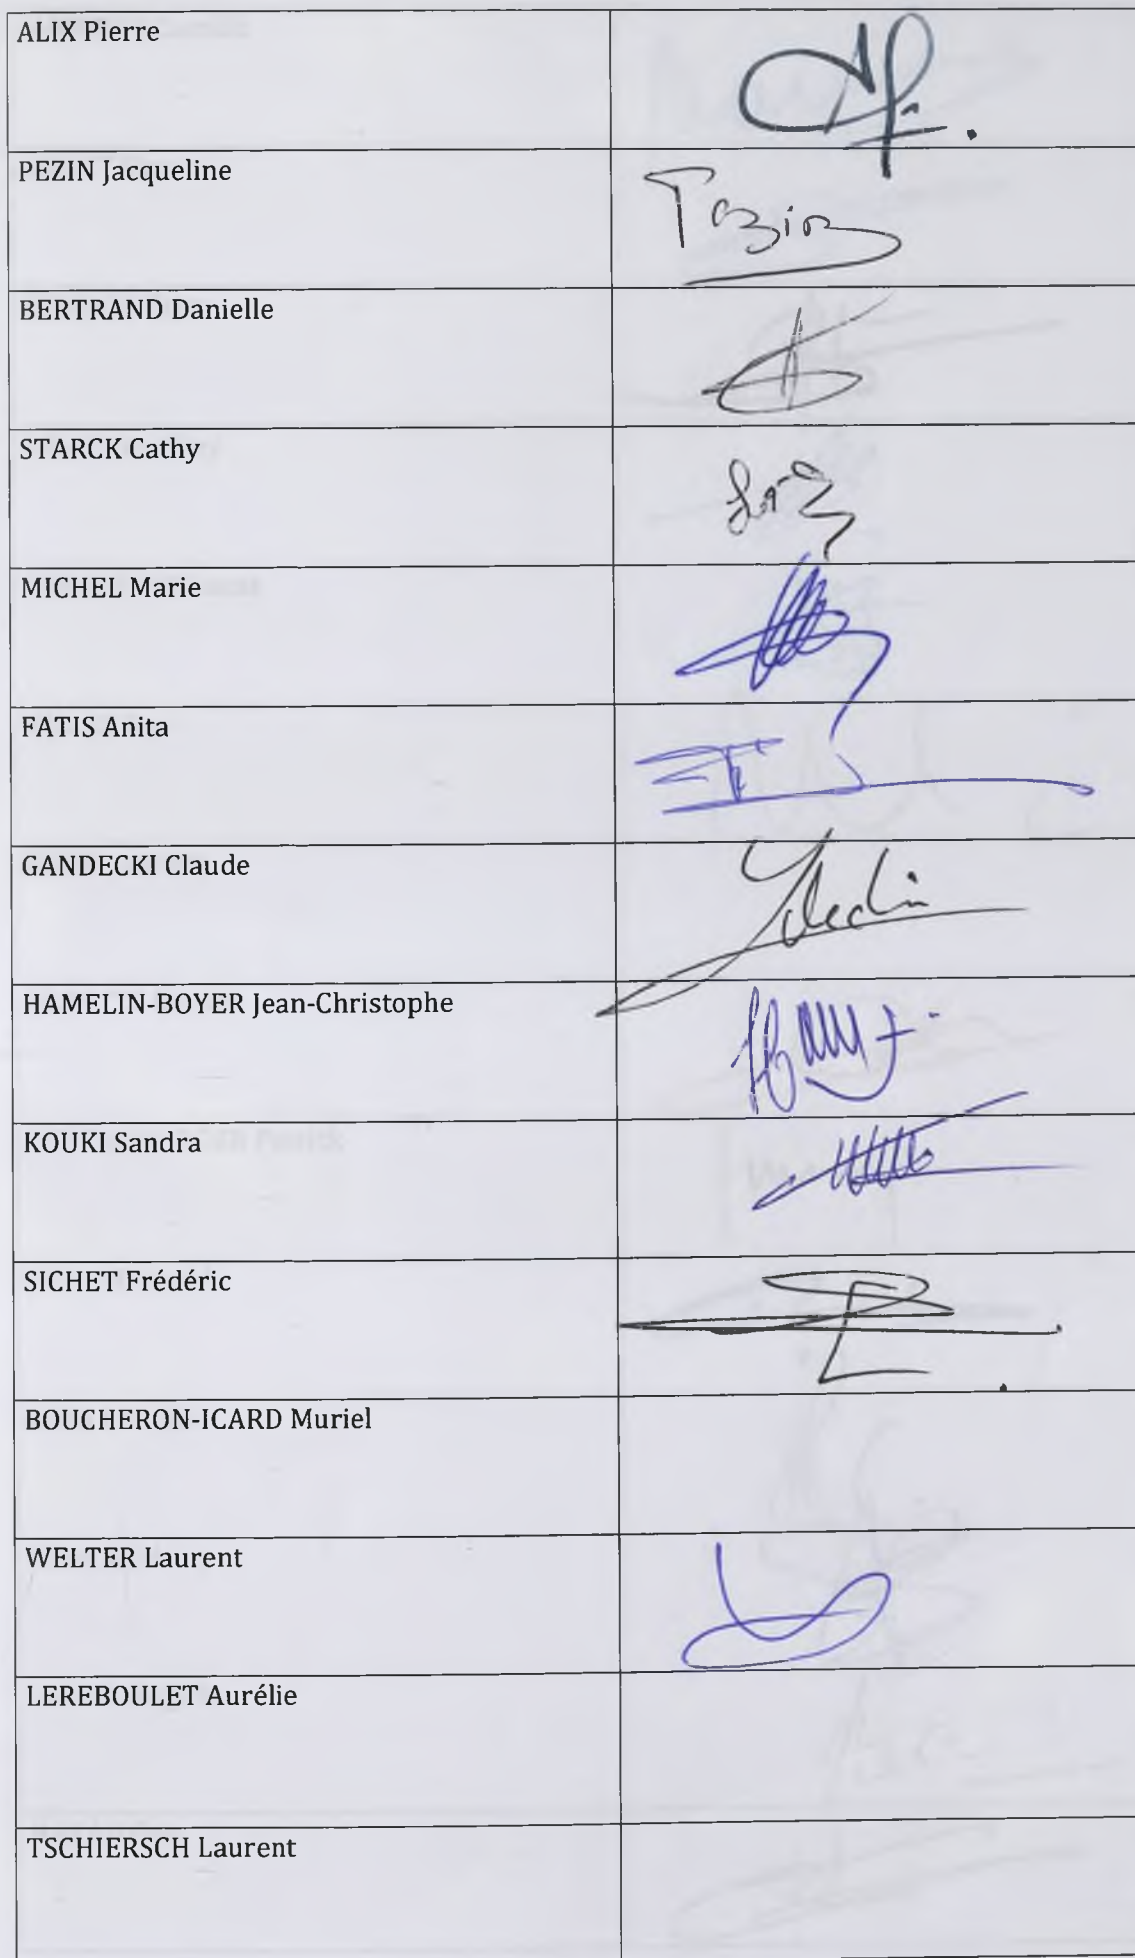 ALIX Pierre
PEZIN Jacqueline
BERTRAND Danielle
STARCK Cathy
MICHEL Marie
FATIS Anita
GANDECKI Claude
HAMELIN-BOYER Jean-Christophe
KOUKI Sandra
SICHET Frédéric
BOUCHERON-ICARD Muriel
WELTER Laurent
LEREBOULET Aurélie
TSCHIERSCH Laurent